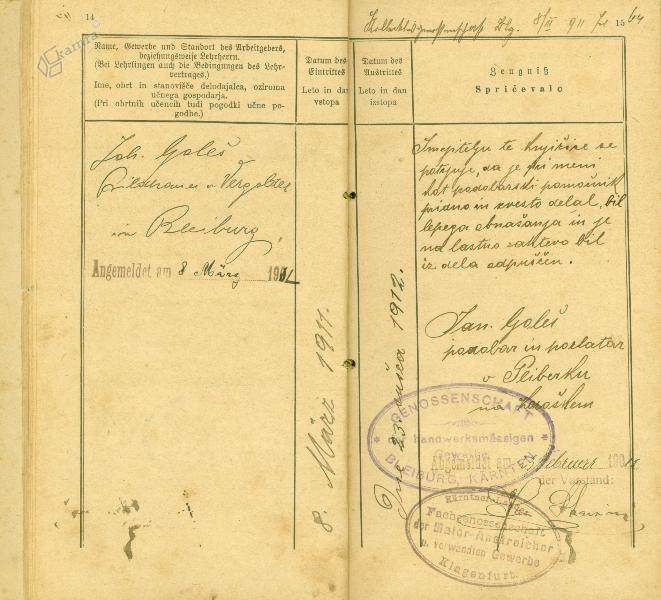 14
kamra
Name, Gewerbe und Standort des Arbeitgebers,
beziehungsweise Lehrherrn.
(Bei Lehrlingen auch die Bedingungen des Lehr-
vertrages.)
Ime, obrt in stanovišče delodajalca, oziroma
učnega gospodarja.
(Pri obrtnih učencih tudi pogodki učne po-
godbe.)
Datum des
Eintrittes
Leto in dan
vstopa
Joh. Goleš
Bildhauer u Vergolder
in Bleiburg,
Angemeldet am 8 März 1911
8. März 1911.
8/III 911
15
64
Datum des
Austrittes
Leto in dan
izstopa
Zeugniß
Spričevalo
Imejitelju te knjižice se
potrjuje, da je pri meni
kot podobarski pomočnik
pridno in zvesto delal, bil
lepega obnašanja in je
na lastno zahtevo bil
iz dela odpuščen.
Jan. Goleš
podobar in pozlatar
v Pliberku
na Koroškem
23 1912.
GENOSSENSCHAFT
handwerksmässigen
Gewerbe
BLEIBURG, KÄRNTEN
Angemeldet am Februar
der Vorstand:
Fachgenossenschaft
der Maler-Anstreicher
u. verwandten Gewerbe
Klagenfurt.